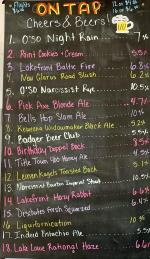 ON TAP
Cheers & Beers!
1. O'so Night Rain 7%
2. Point Cookies + Cream 5.5%
3. Lakefront Baltic Fire 6.8%
4. New Glarus Road Slush 6.2%
5. O'so Narcissist Rye 10.5%
6. Pick Axe Blonde Ale 4.7%
7. Bells Hop Slam Ale 10%
8. Keweena Widowmaker Black Ale 5.2%
9. Badger Beer Club 5.5%
10. Birthday Doppel Bock 8.5%
11. Title Town 400 Honey Ale 4.5%
12. Leinenkugels Toasted Bock 5.1%
13. Imperial Stout
14. Lakefront Hazy Rabbit 6.8%
15. Deschutes Fresh Squeezed 6.4%
16. Liquifornication
17. Indeed Pistachio Ale 5.5%
18. Lala Love Rational Haze 6.6%